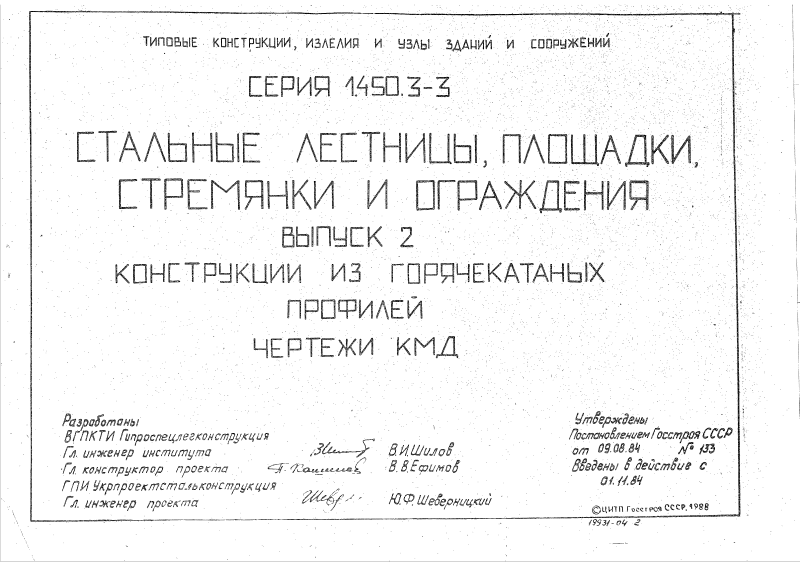 ТИПОВЫЕ КОНСТРУКЦИИ, ИЗДЕЛИЯ И УЗЛЫ ЗДАНИЙ И СООРУЖЕНИЙ
СЕРИЯ 1.450.3-3
СТАЛЬНЫЕ ЛЕСТНИЦЫ, ПЛОЩАДКИ,
СТРЕМЯНКИ И ОГРАЖДЕНИЯ
ВЫПУСК 2
КОНСТРУКЦИИ ИЗ ГОРЯЧЕКАТАНЫХ
ПРОФИЛЕЙ
ЧЕРТЕЖИ КМД
Разработаны
ВГПКТИ Гипроспецлегконструкция
Гл. инженер института В.И.Шилов
Гл. конструктор проекта В.В.Ефимов
ГПИ Укрпроектстальконструкция
Гл. инженер проекта Ю.Ф.Шеверницкий
Утверждены
Постановлением Госстроя СССР
от 09.08.84 № 133
Введены в действие с
01.11.84
©ЦИТП Госстроя СССР, 1988
19931-04 2